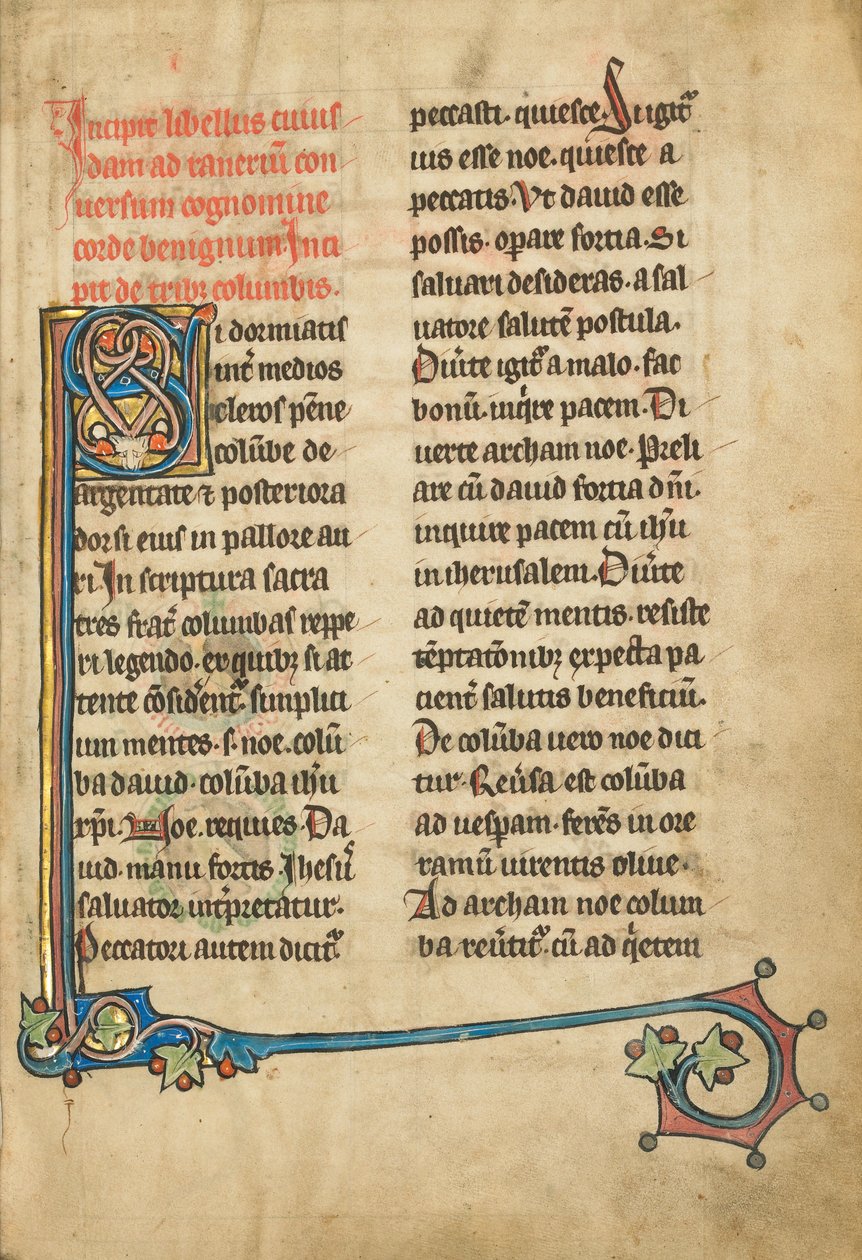 Incipit libellus cuius
dam ad raneriū con
uersum cognomine
corde benignum. Inci
pit de tribꝫ columbis.
Si dormiatis
int͛ medios
cleros pēne
colūbe de
argentate ⁊ posteriora
dorsi eius in pallore au
ri. In scriptura sacra
tres frat͛ columbas reppe
ri legendo. ex quibꝫ si at
tente ꝯ̄sident᷑ simplici
um mentes. s. noe. colū
ba dauid. colūba ihū
xp̄i. Noe. requies. Da
uid. manu fortis. Ihesus͛
saluator int͛pretatur.
Peccatori autem dicit᷑
peccasti. quiesce. Si igit᷑
uis esse noe. quiesce a
peccatis. Vt dauid esse
possis. oꝑare fortia. Si
saluari desideras. a sal
uatore salutē postula.
Diu͛te igit᷑ a malo. fac
bonū. inqͥre pacem. Di
uerte archam noe. Preli
are cū dauid fortia dn̄i.
inquire pacem cū ihū
in iherusalem. Diu͛te
ad quietē mentis. resiste
tēptatōnibꝫ expecta pa
cient͛ salutis beneficiū.
De colūba uero noe dici
tur. Reu͛sa est colūba
ad uesꝑam. ferēs in ore
ramū uirentis oliue.
Ad archam noe colum
ba reu͛tit᷑. cū ad qͥetem